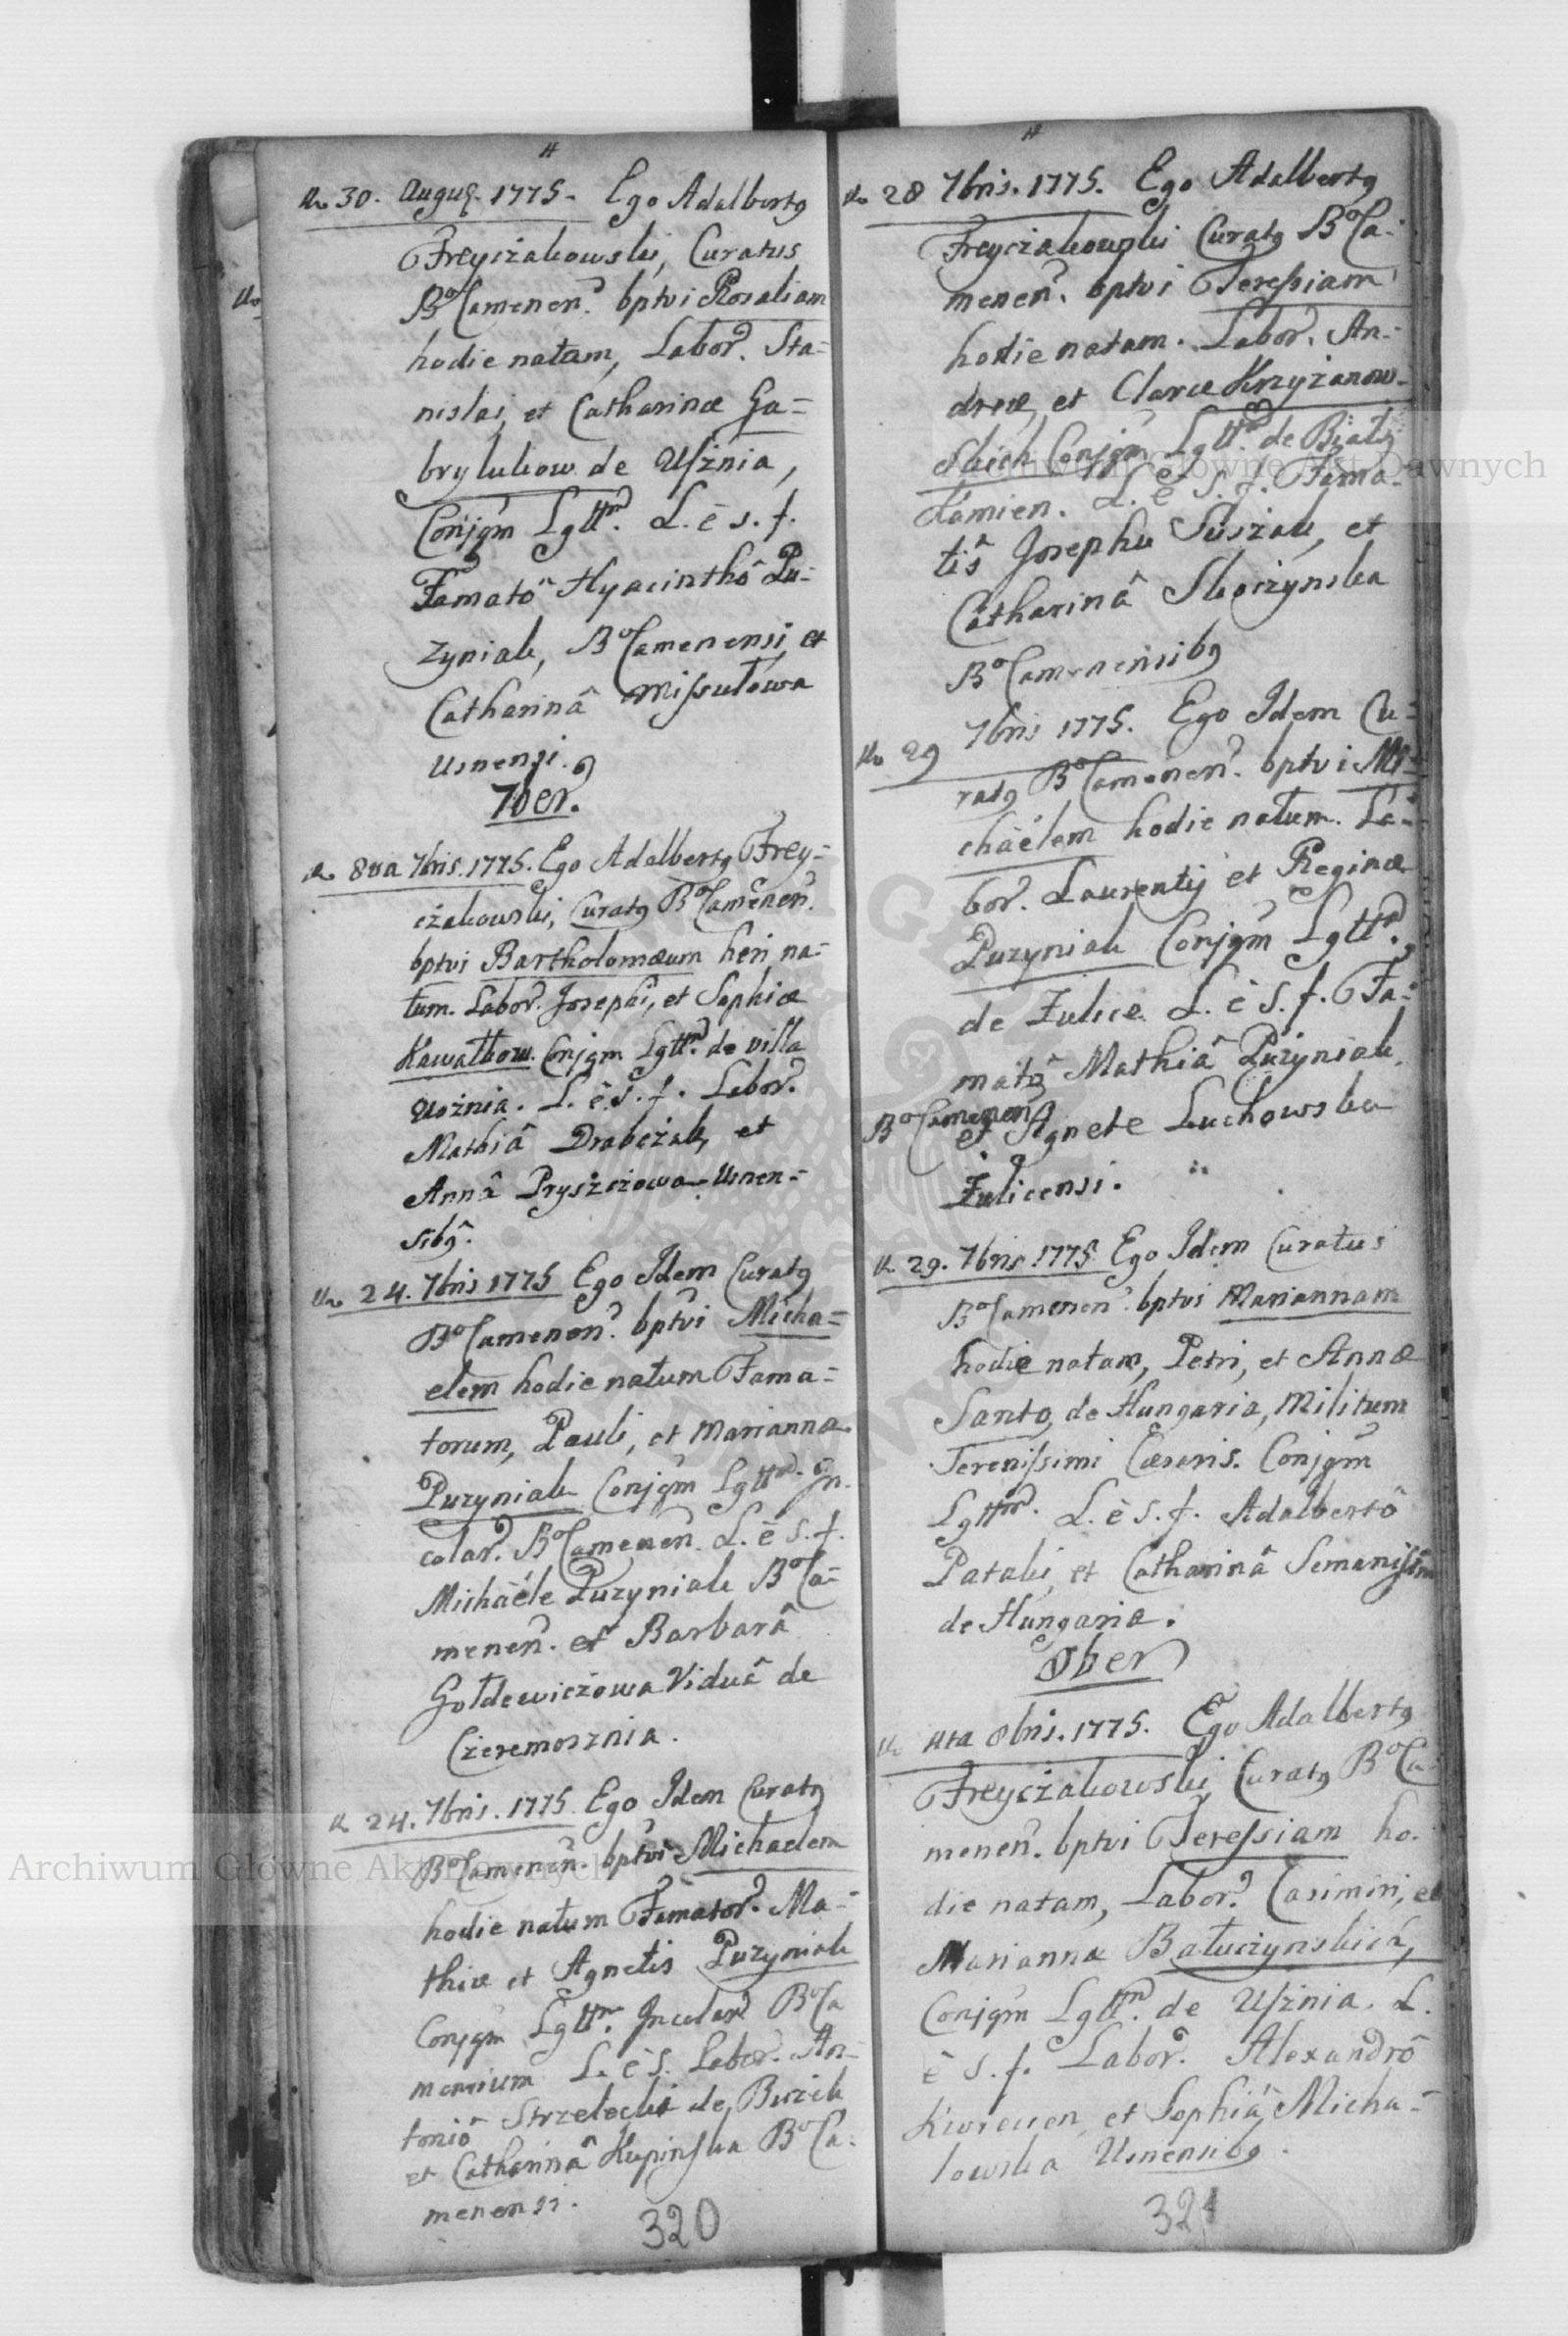 30. Augus. 1775. Ego Adalbertg
Freyczakowski, Curatus
BoCamenen. bptvi Rosaliam
hodie natam, Labor. Sta=
nislai, et Catharinæ Ga=
brylukow de Usznia,
Conjgm Lgttm. L. è s. f.
Famatô Hyacinthô Pu=
zyniak, BoCamenensi, et
Catharinâ Missułowa
Usnensi.
7ber.
8va 7bris. 1775. Ego Adalbertg Frey=
czakowski, Curatg BoCamenen.
bptvi Bartholomæum heri na=
tum. Labor. Josephi, et Sophiæ
Kawałkow. Conjgm Lgttm. de villa
Uoznia. L. è. s. f. Labor.
Mathiâ Drabczak, et
Annâ Pryszczowa Usnen=
sibg.
24. 7bris 1775 Ego Idem Curatg
BoCamenen. bptvi Micha=
elem hodie natum Fama=
torum, Pauli, et Mariannæ
Puzyniak Conjgm Lgttm. In
colar. BoCamenen. L. è s. f.
Michaële Puzyniak BoCa=
menen. et Barbarâ
Gołdewiczowa Viduâ de
Czeremosznia.
24. 7bris. 1775. Ego Idem Curatg
BoCamenen. bptvi Michaelem
hodie natum Famator. Ma=
thiæ et Agnetis Puzyniak
Conjgm Lgttm. Incolar. BoCa
mensium L. è s. Labor. An=
toniô Strzelecki de Buzek
et Catharinâ Kupinska BoCa.
menensi.
320
28 7bris. 1775. Ego Adalbertg
Freyczakowski Curatg BoCa=
menen. bptvi Teressiam
hodie natam. Labor. An=
dreæ, et Claræ Krzyżanow=
skich Conjgm Lgttm. de Biały
kamien. L. è s. f. Fama=
tis Josephu Suszak, et
Catharinâ Skoczynska
BoCamenensibg
29 7bris 1775. Ego Idem Cu=
ratg BoCamenen. bptvi Mi=
chaëlem hodie natum. La=
bor. Laurentij et Reginæ
Puzyniak Conjgm Lgttm.
de Zulice. L. è s. f. Fa=
matg Mathiâ Puzyniak.
BoCamenen
et Agnete Luchowska
Zulicensi.
29. 7bris 1775 Ego Idem Curatus
BoCamenen. bptvi Mariannam
hodie natam, Petri, et Annæ
Santo, de Hungaria, Militum
Serenissimi Cæsaris. Conjgm
Lgttm. L. è s. f. Adalbertô
Pataki, et Catharinâ
de Hungaria.
8ber
4ta 8bris. 1775. Ego Adalbertg
Freyczakowski Curatg BoCa=
menen. bptvi Teressiam ho.
die natam, Labor. Casimiri, et
Mariannæ Batuczynskich,
Conjgm Lgttm. de Usznia. L.
è s. f. Labor. Alexandrô
et Sophiâ Micha=
lowska Usnensibg.
321
Archiwum Główne Akt Dawnych
Archiwum Główne Akt Dawnych